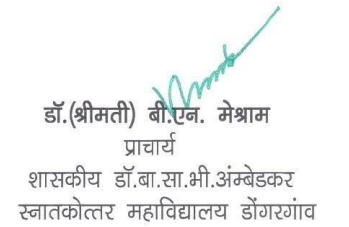 डॉ.(श्रीमती) बी.एन. मेश्राम
प्राचार्य
शासकीय डॉ.बा.सा.भी.अंम्बेडकर
स्नातकोत्तर महाविद्यालय डोंगरगांव